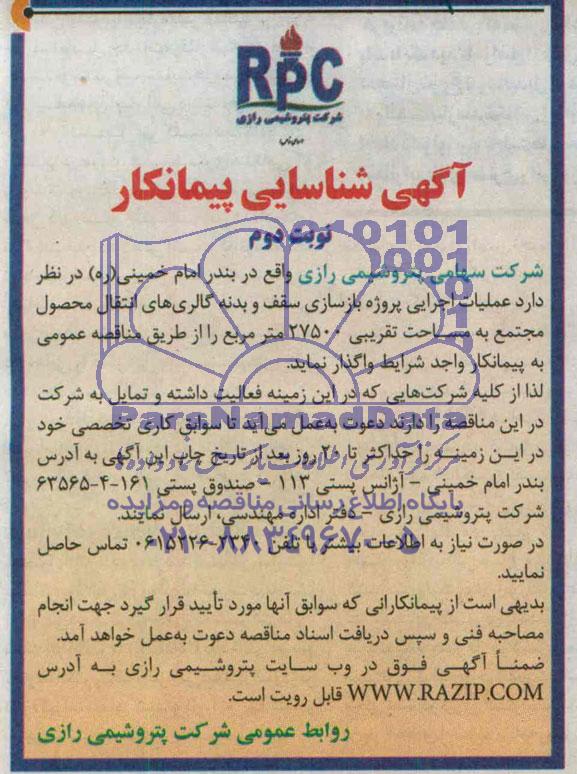 RPC
شرکت پتروشیمی رازی
(سهامی خاص)
آگهی شناسایی پیمانکار
نوبت دوم
شرکت سهامی پتروشیمی رازی واقع در بندر امام خمینی(ره) در نظر
دارد عملیات اجرایی پروژه بازسازی سقف و بدنه گالری‌های انتقال محصول
مجتمع به مساحت تقریبی ۲۷۵۰۰ متر مربع را از طریق مناقصه عمومی
به پیمانکار واجد شرایط واگذار نماید.
لذا از کلیه شرکت‌هایی که در این زمینه فعالیت داشته و تمایل به شرکت
در این مناقصه را دارند دعوت به‌عمل می‌آید تا سوابق کاری تخصصی خود
در این زمینه را حداکثر تا روز بعد از تاریخ چاپ این آگهی به آدرس
بندر امام خمینی - آژانس پستی ۱۱۳ - صندوق پستی ۱۶۱-۴-۶۳۵۶۵
شرکت پتروشیمی رازی - دفتر اداره مهندسی، ارسال نمایند.
در صورت نیاز به اطلاعات بیشتر با تلفن تماس حاصل
نمایید.
بدیهی است از پیمانکارانی که سوابق آنها مورد تأیید قرار گیرد جهت انجام
مصاحبه فنی و سپس دریافت اسناد مناقصه دعوت به‌عمل خواهد آمد.
ضمناً آگهی فوق در وب سایت پتروشیمی رازی به آدرس
WWW.RAZIP.COM قابل رویت است.
روابط عمومی شرکت پتروشیمی رازی
ParsNamadData
پایگاه اطلاع رسانی مناقصه و مزایده
۰۲۱-۸۸۳۴۹۶۷۰-۵